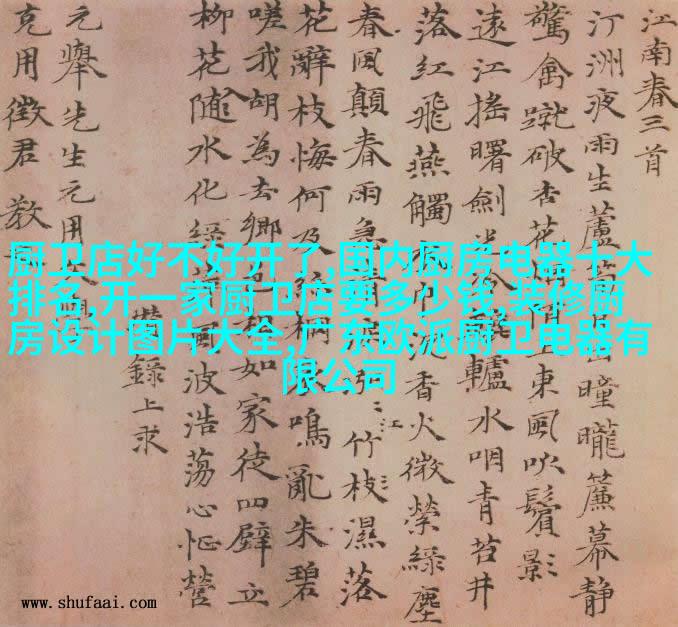 江南春三首
汀洲夜雨生蘆日曈曨簾幕静
驚禽蹴破杏花上東風吹鬢影
遠江搖曙劍轤水咽青苔井
落紅飛燕觸巾香火微縈綠塵
春風顛春雨急江竹枝濕落
花辭枝悔何及桐鳴亂朱碧
嗟我胡為去鄉如家徒四壁立
柳花隨水化綠風波浩蕩心怔營
錄上求
元舉先生元用
克用徵君教
厨卫店好不好开了,国内厨房电器十大
排名,开一家厨卫店要多少钱,装修厨
房设计图片大全,广东欧派厨卫电器有
限公司
www.shufaai.com